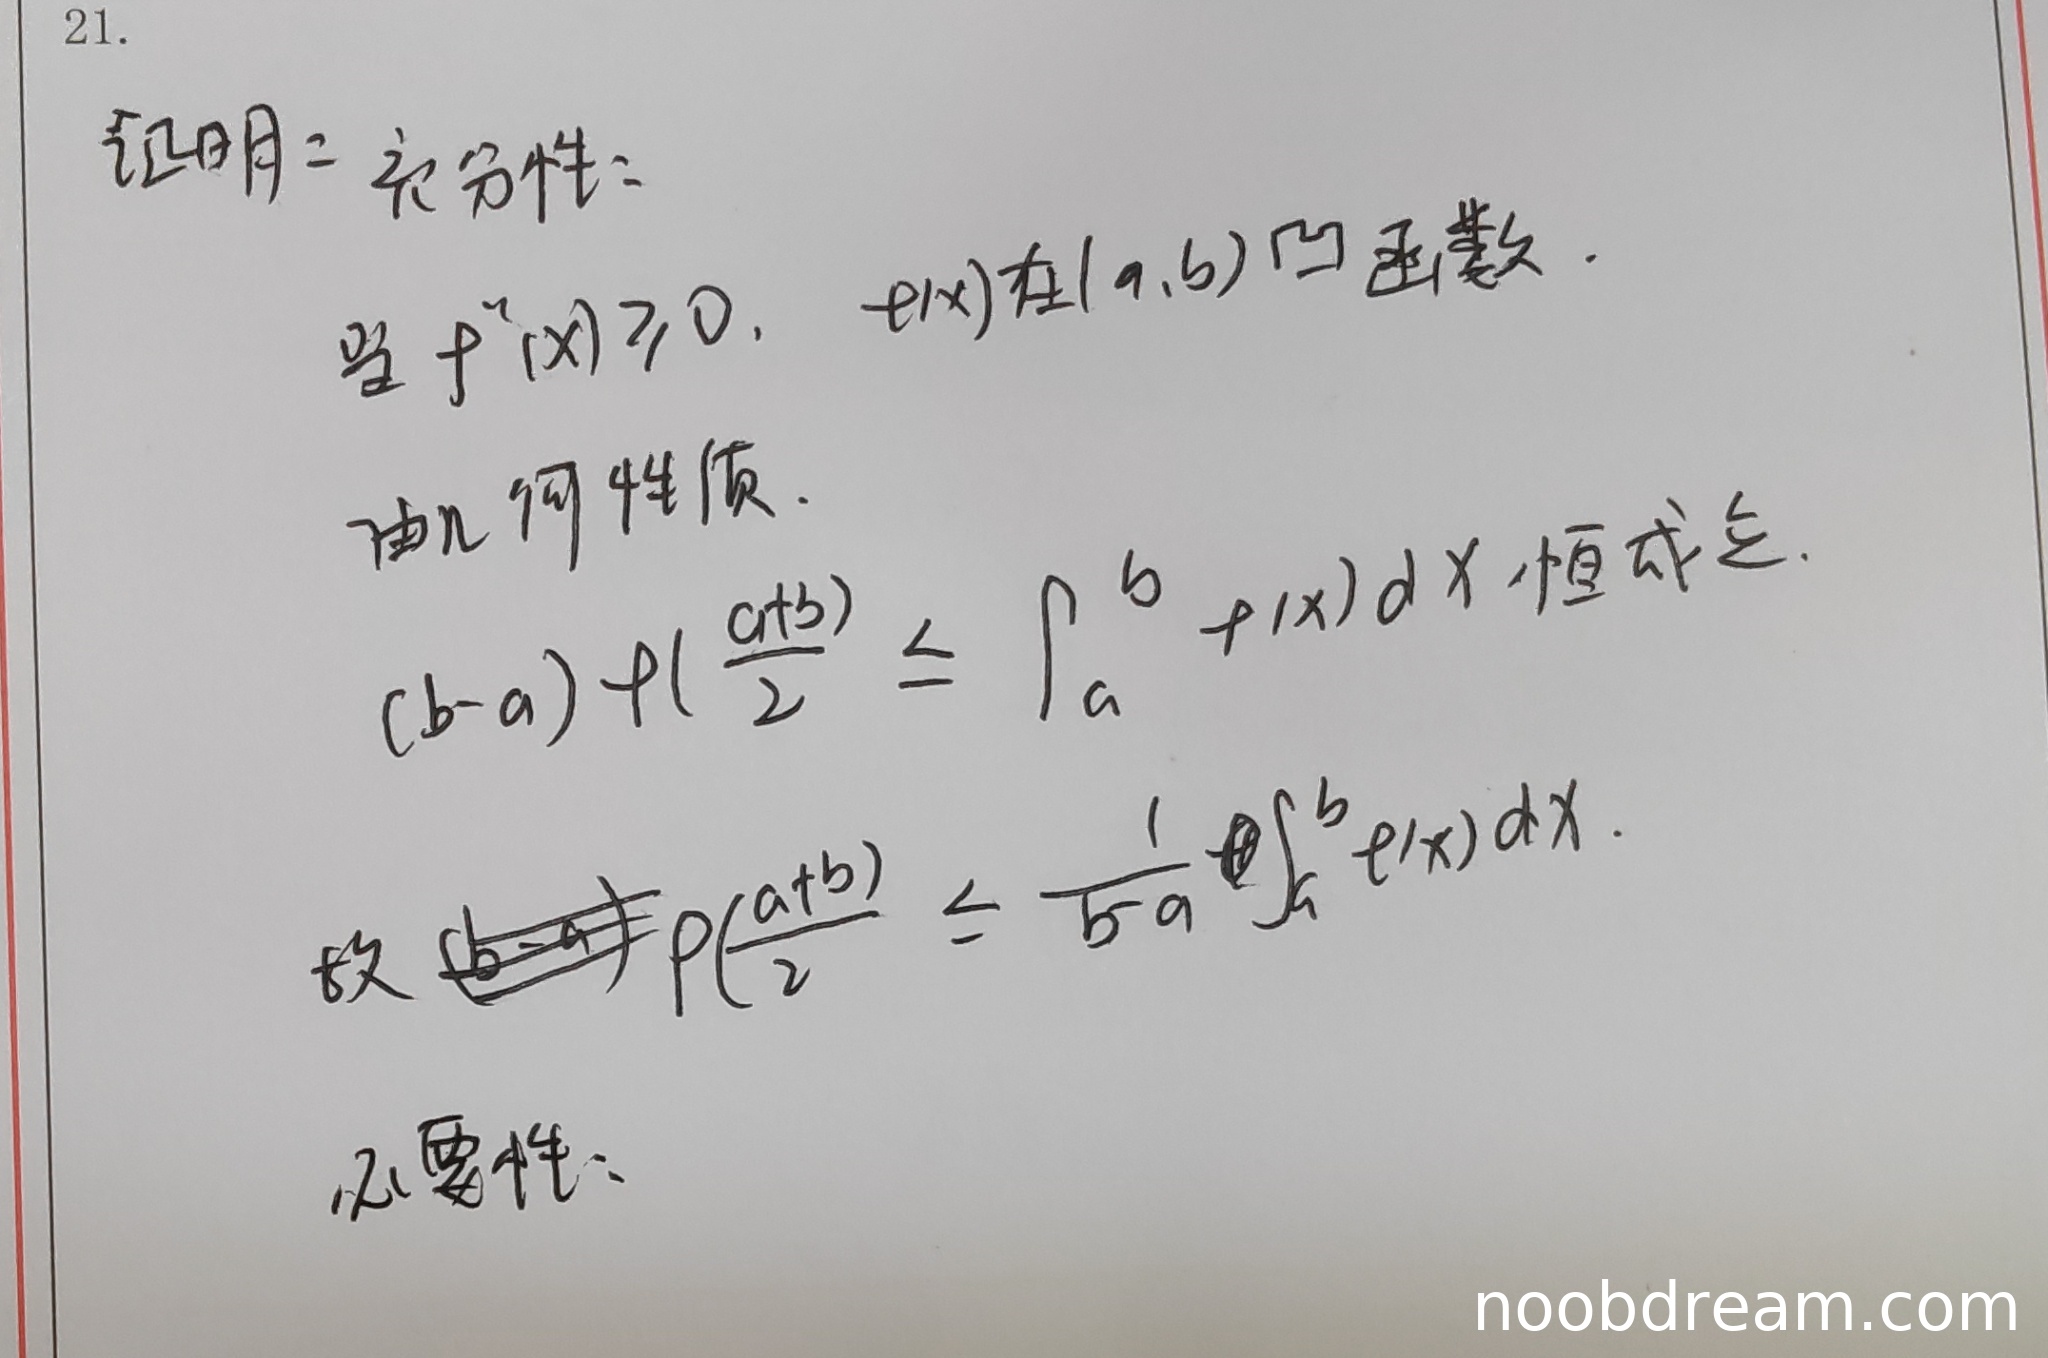 21.
证明: 充分性:
当 f''(x) ≥ 0, f(x)在(a,b)凹函数.
由几何性质.
(b-a) f(\frac{a+b}{2}) ≤ ∫_a^b f(x)dx 恒成立.
故 f(\frac{a+b}{2}) ≤ \frac{1}{b-a} ∫_a^b f(x)dx.
必要性:
noobdream.com